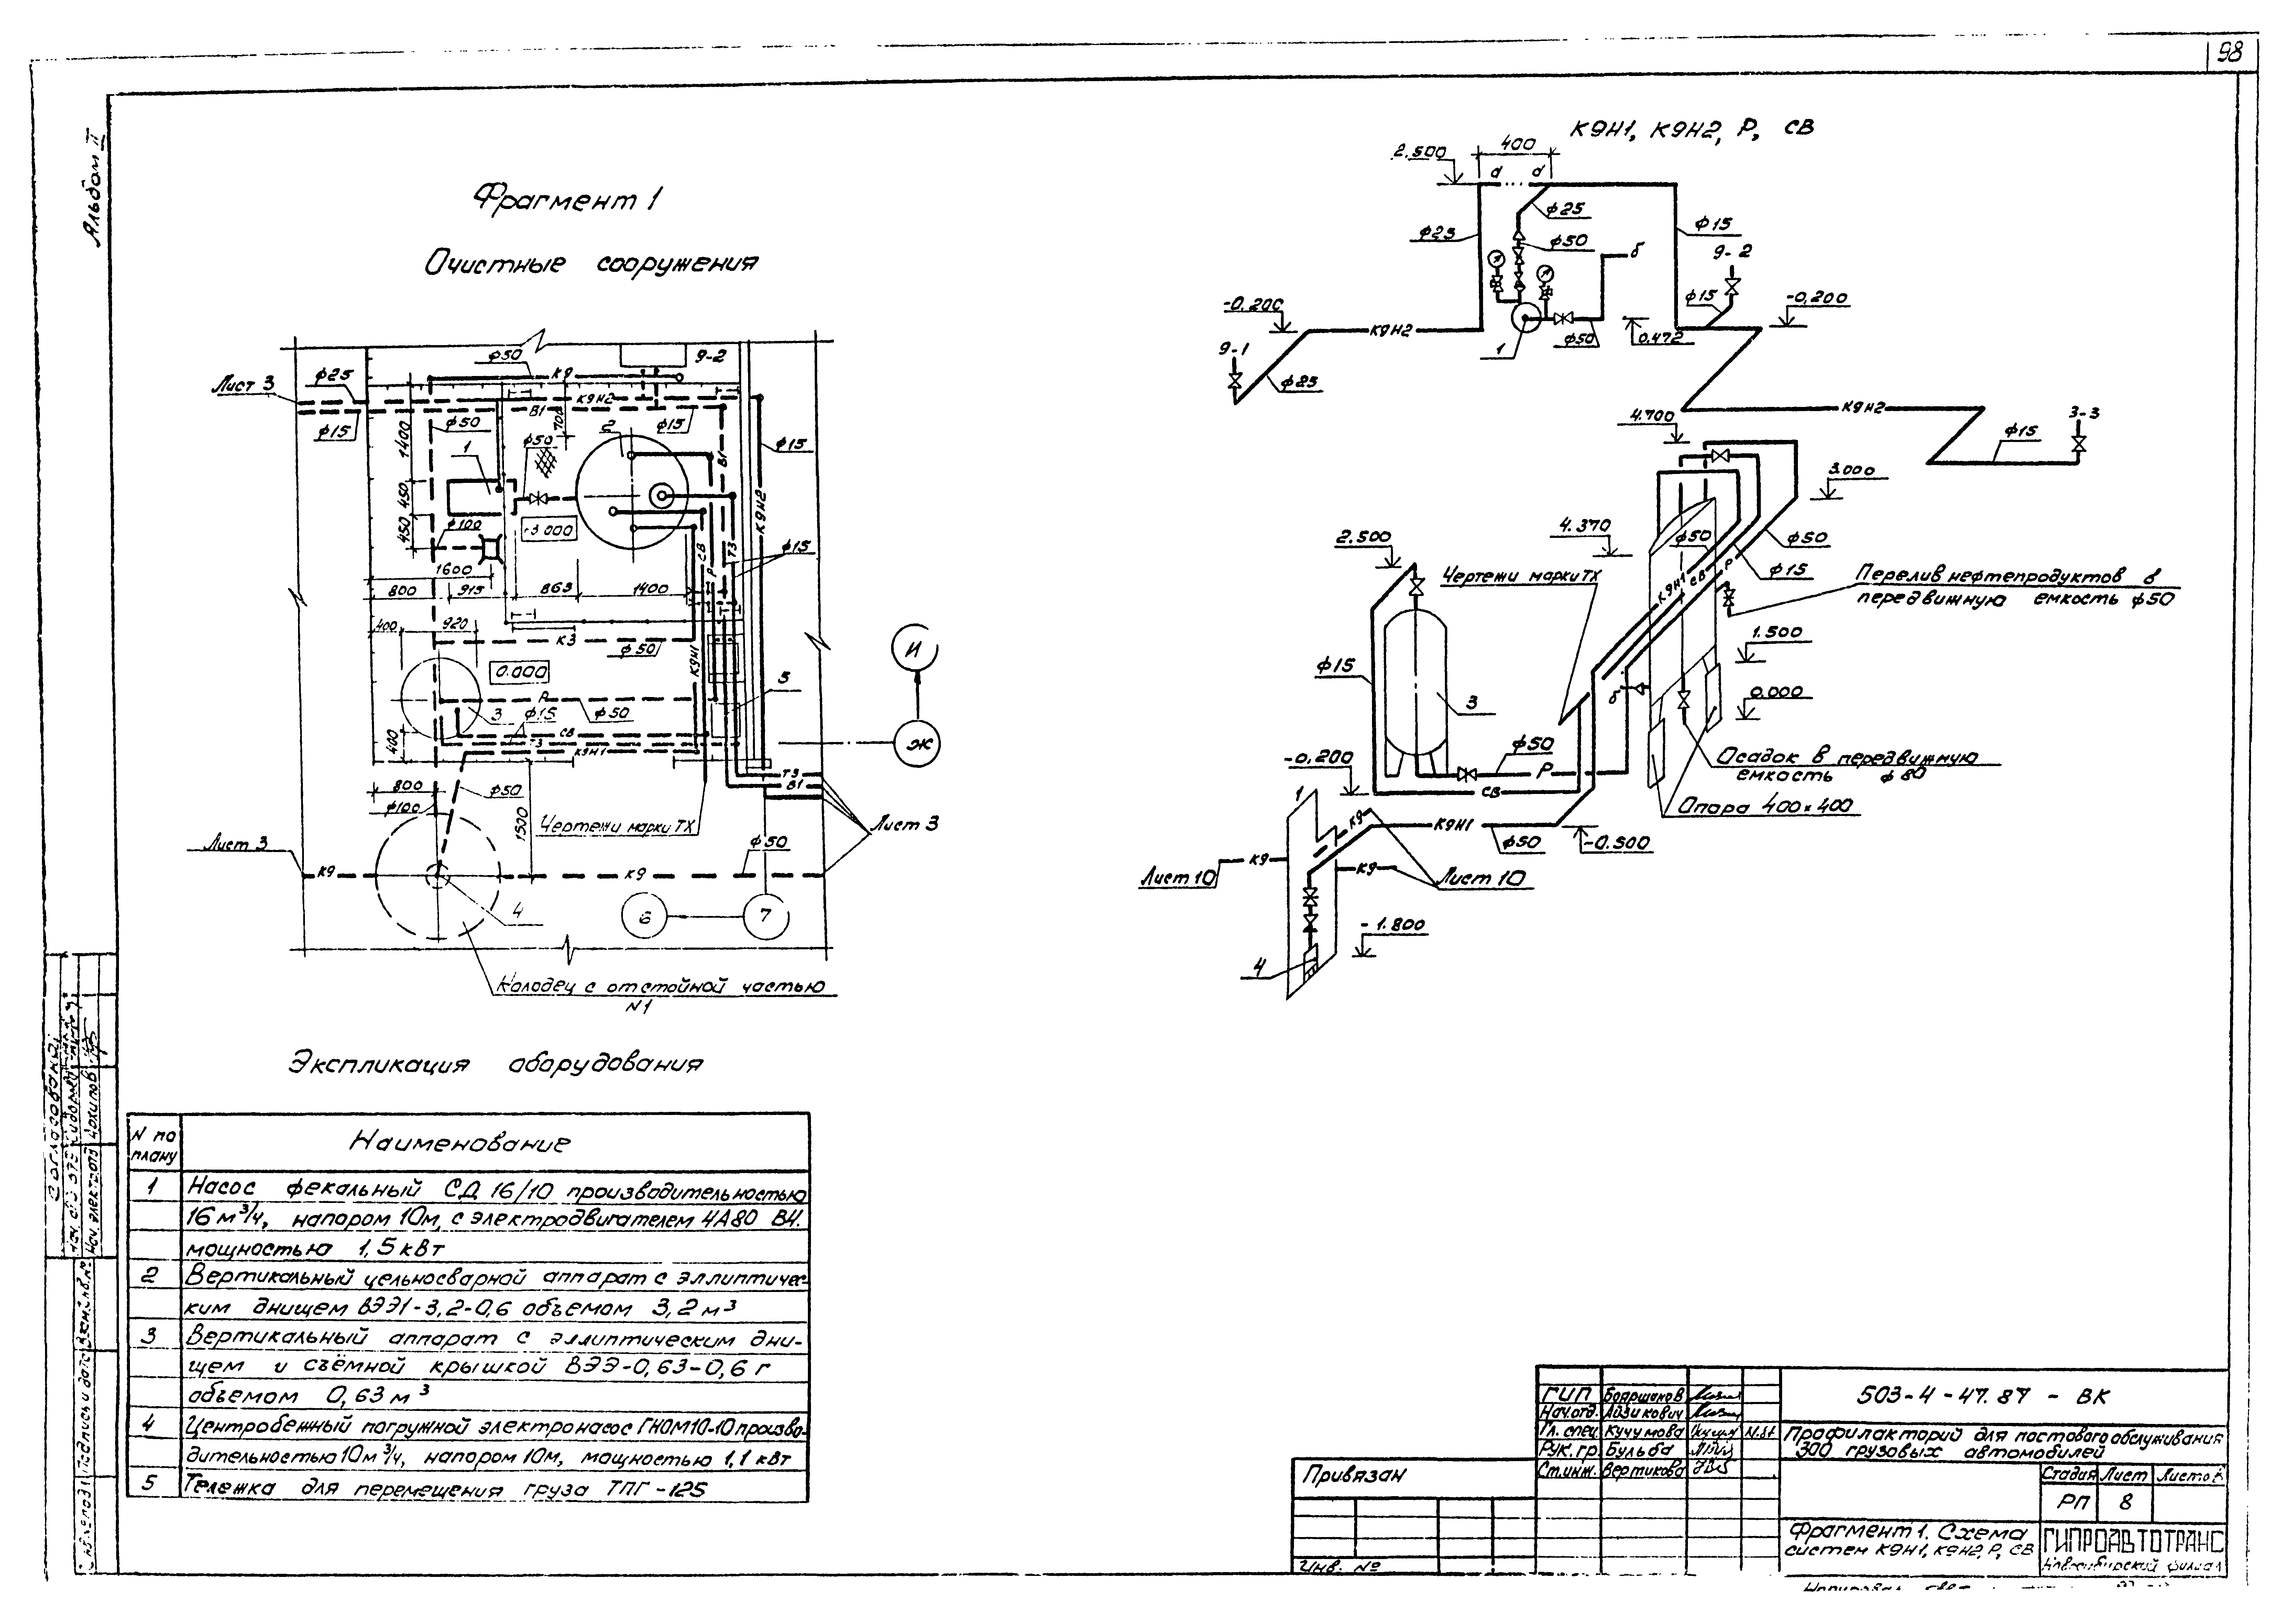 98
Альбом II
Фрагмент 1
Очистные сооружения
Лист 3
ф25
ф15
ф50
К9
9-2
К9Н2
В1
ф15
ф50
1400
1
ф50
700
2
ф15
В1
450
450
ф100
3.000
К9Н2
СВ
Т3
Р
ф15
1600
800
915
863
1400
400
920
К3
ф50
К9Н1
0.000
5
Р
3
ф15
ф50
СВ
Т3
К9Н1
400
И
Ж
800
ф100
ф50
1500
Т3
В1
Чертежи марки ТХ
Лист 3
ф50
Лист 3
К9
К9
4
6
7
Колодец с отстойной частью
N1
К9Н1, К9Н2, Р, СВ
2.500
400
а
а
ф25
ф25
ф50
б
ф15
9-2
ф15
-0,200
-0.200
К9Н2
1
ф50
0.472
9-1
ф25
К9Н2
3-3
ф15
4.700
3.000
4.370
ф50
ф50
ф15
2.500
Чертежи марки ТХ
К9Н1
СВ
Р
Перелив нефтепродуктов в
передвижную емкость ф50
1.500
ф15
3
б
0.000
ф50
Р
-0,200
СВ
Осадок в передвижную
емкость ф80
Опора 400×400
1
К9
К9Н1
ф50
-0.500
К9
Лист 10
К9
Лист 10
-1.800
4
Экспликация оборудования
N по
плану
Наименование
1
Насос фекальный СД 16/10 производительностью
16 м³/ч, напором 10м, с электродвигателем 4А80 В4.
мощностью 1,5 кВт
2
Вертикальный цельносварной аппарат с эллиптичес-
ким днищем ВЭЭ1-3,2-0,6 объемом 3,2 м³
3
Вертикальный аппарат с эллиптическим дни-
щем и съёмной крышкой ВЭЭ-0,63-0,6 г
объемом 0,63 м³
4
Центробежный погружной электронасос ГНОМ10-10 произво-
дительностью 10 м³/ч, напором 10м, мощностью 1,1 кВт
5
Тележка для перемещения груза ТПГ-125
Согласовано
Взам.инв.№
Подпись и дата
Привязан
Инв. №
ГИП Бояршинов
Нач.отд. Айзикович
Гл. спец. Кучумова
Рук. гр. Бульба
Ст.инж. Вертикова
503-4-47.87 - ВК
Профилакторий для постового обслуживания
300 грузовых автомобилей
Стадия Лист Листов
РП 8
Фрагмент 1. Схема
систем К9Н1, К9Н2, Р, СВ
ГИПРОАВТОТРАНС
Новосибирский филиал